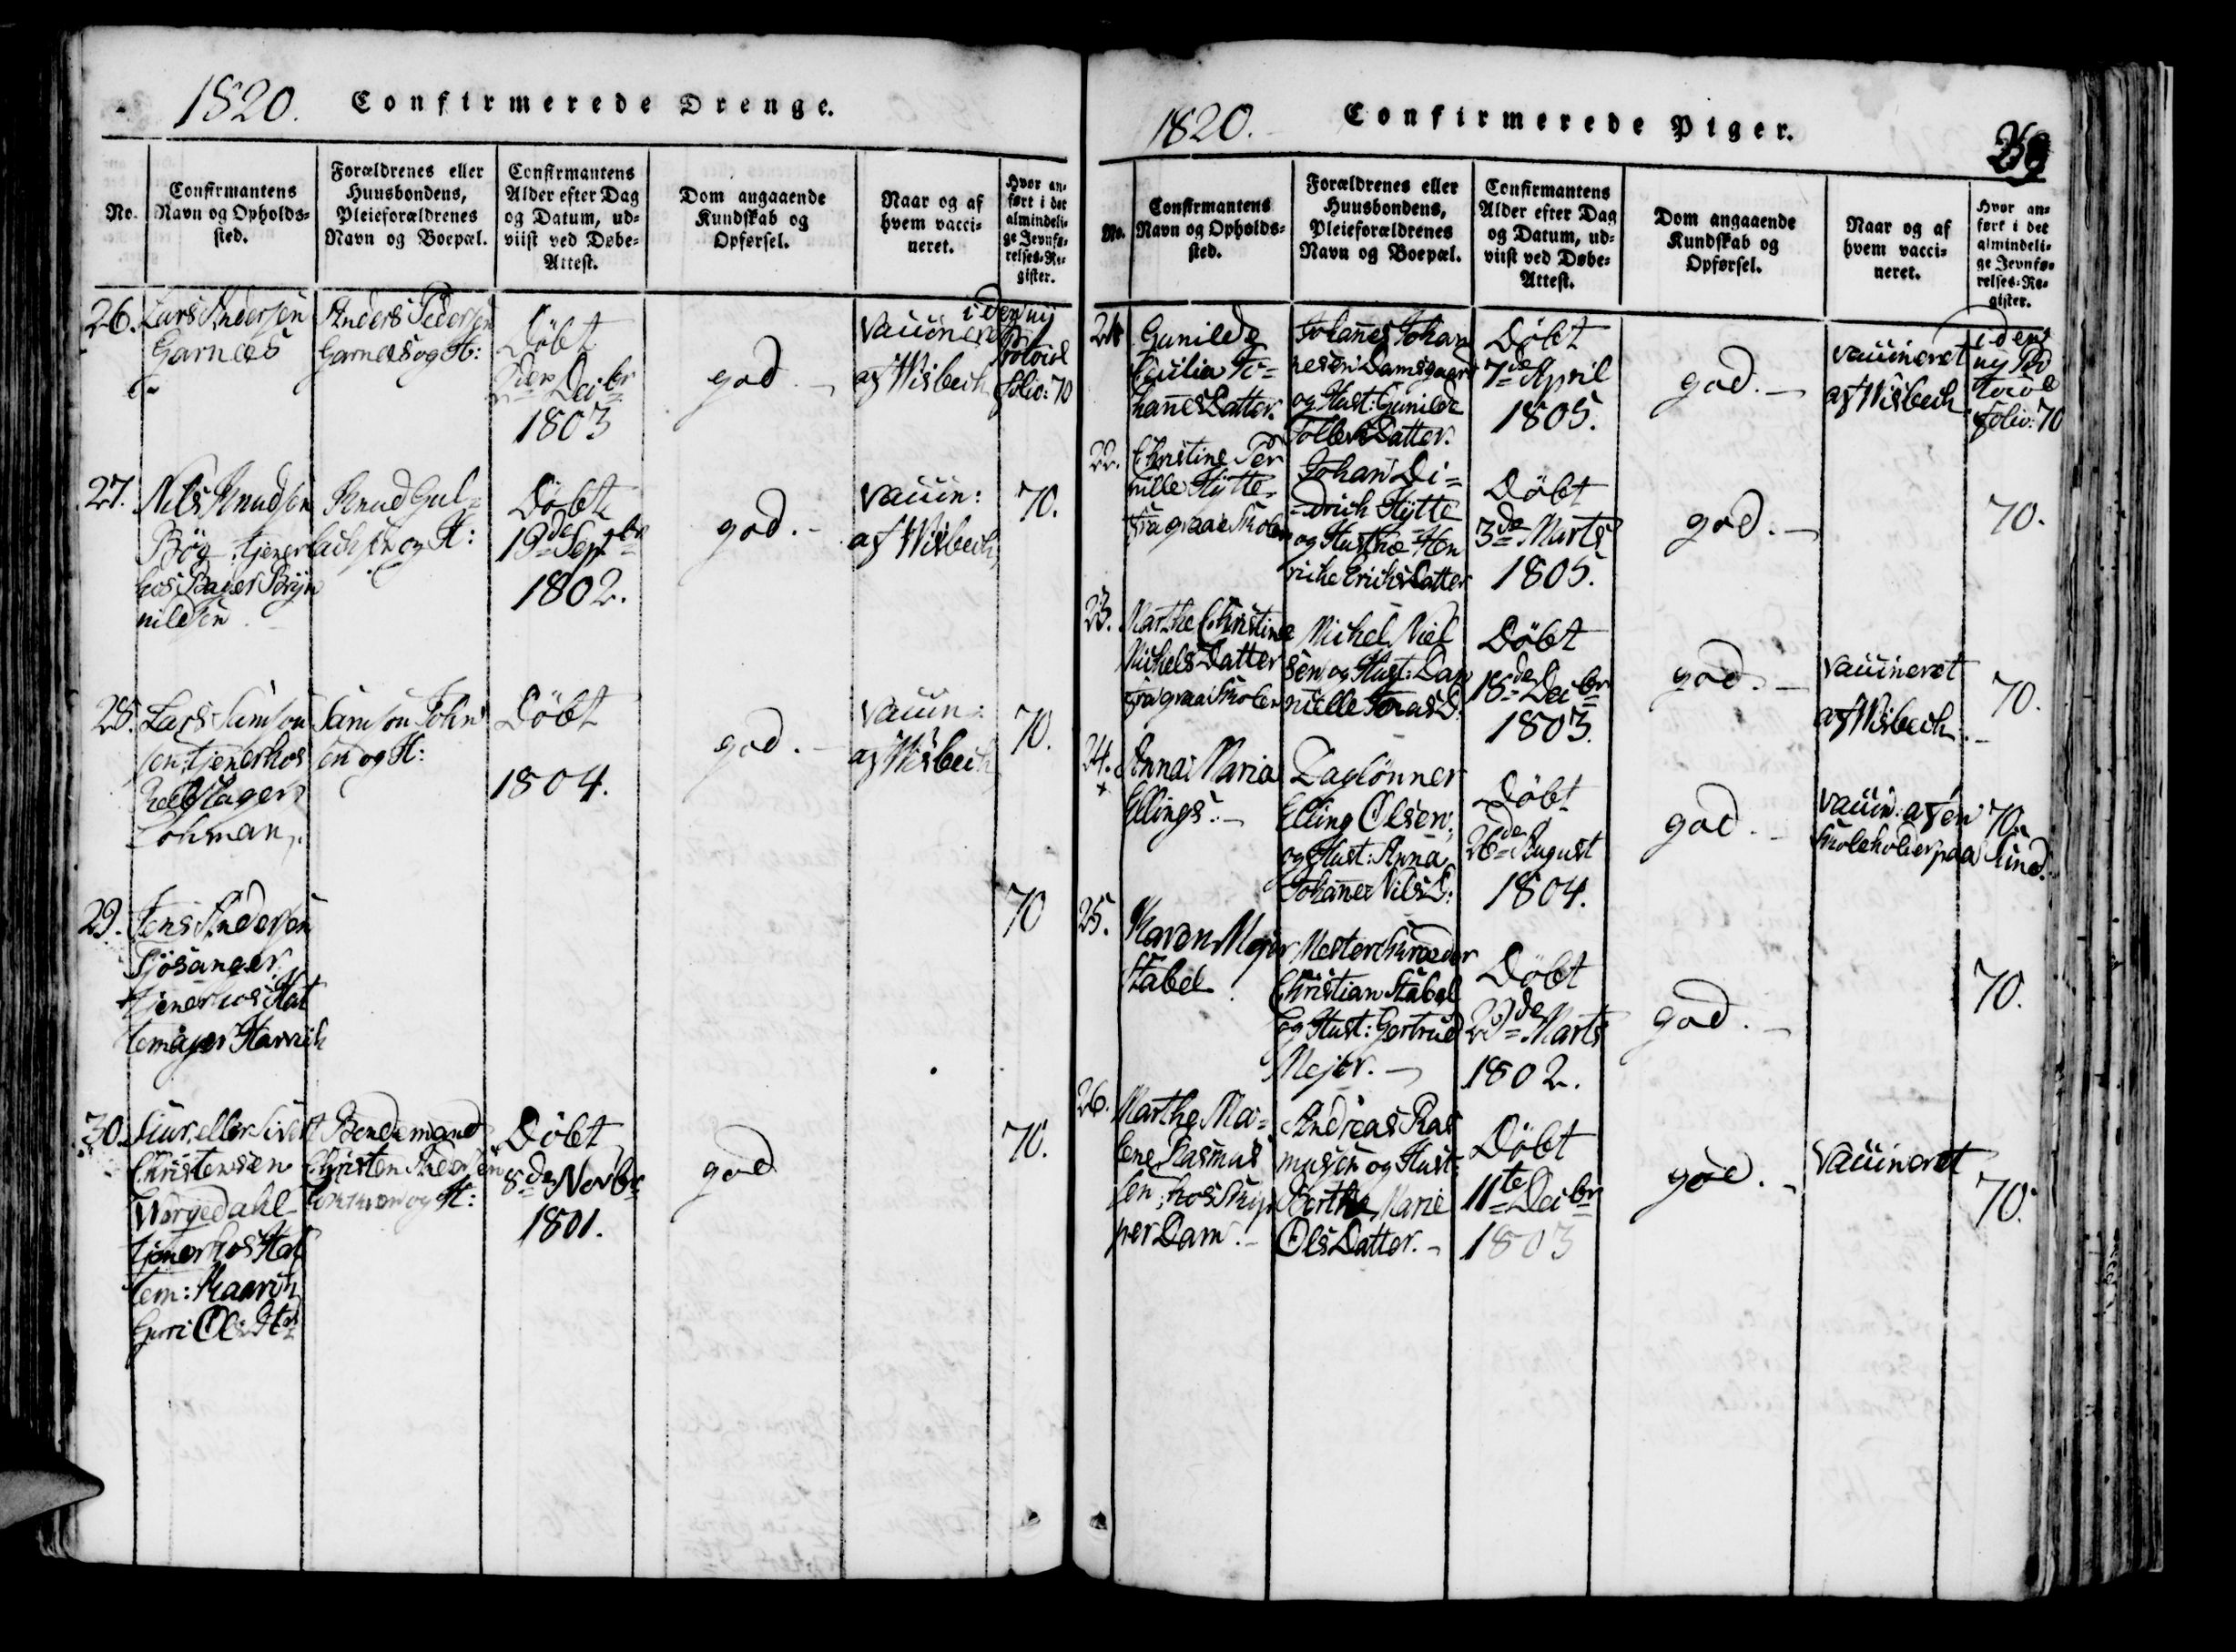 1820.
Confirmerede Drenge.
No.
Confirmantens
Navn og Opholds=
sted.
Forældrenes eller
Huusbondens,
Pleieforældrenes
Navn og Boepæl.
Confirmantens
Alder efter Dag
og Datum, ud=
viist ved Døbe=
Attest.
Dom angaaende
Kundskab og
Opførsel.
Naar og af
hvem vacci=
neret.
Hvor an=
ført i det
almindeli=
ge Jevnfø=
relses=Re=
gister.
26.
Lars Andersen
Garnæs
Anders Pedersen
Garnæs og H:
Döbt
Decbr
1803
god.
vaccineret
af Wisbech
i den ny
Protocol
folio: 70
27.
Nils Knudsen
Bög tjener
hos Bager Bryn
nildsen
Knud Gul=
lachsen og H:
Döbt
19de Septbr
1802.
god.
vaccin:
af Wisbech
70.
28.
Lars Samson
sen tjener hos
Rebslager
Lohman.
Samson John
sen og H:
Döbt
1804.
god.
vaccin:
af Wisbech
70.
29.
Jens Andersen
Fjösanger
tjener hos Hat
temager
70
30.
Siur eller Sivert
Christensen
tjener hos Hat
tem:
Bendemand
Christen Andersen
og H:
Döbt
8de Novbr
1801.
god
70.
1820.
Confirmerede Piger.
No.
Confirmantens
Navn og Opholds=
sted.
Forældrenes eller
Huusbondens,
Pleieforældrenes
Navn og Boepæl.
Confirmantens
Alder efter Dag
og Datum, ud=
viist ved Døbe=
Attest.
Dom angaaende
Kundskab og
Opførsel.
Naar og af
hvem vacci=
neret.
Hvor an=
ført i det
almindeli=
ge Jevnfø=
relses=Re=
gister.
21
Gunilde
Cecilia Jo=
hannes Datter.
Johannes Johan
nesen Damsgaard
og Hust: Gunilde
Tollev Datter.
Döbt
7de April
1805.
god.
vaccineret
af Wisbech
i den
ny Pro
tocol
folio: 70
22.
Christine Per
nille Hytte
fra graae Skolen
Johan Di=
drich Hytte
og Hust
riche Erichs Datter
Döbt
3de Marts
1805.
god.
70.
23.
Marthe Christine
Michels Datter
fra graae Skolen
Michel Niel
sen og Hust: Dan
nielle D:
Döbt
18de Decbr
1803.
god.
vaccineret
af Wisbech.
70.
24.
Anna Maria
Ellings.
Daglönner
Elling Olsen,
og Hust: Anna
Johanne Nils D:
Döbt
26de August
1804.
god.
vaccin: af en
Skoleholder paa Sund.
70.
25.
Karen Mejer
Stabel
Mester Skræder
Christian Stabel
og Hust: Gertrud
Mejer.
Döbt
Marts
1802.
god.
70.
26.
Marthe Ma=
lene Rasmus
sen, hos Skip
per Dam.
Andreas Ras
musen og Hust:
Berthe Marie
Ols Datter.
Döbt
11te Decbr
1803
god.
vaccineret
70.